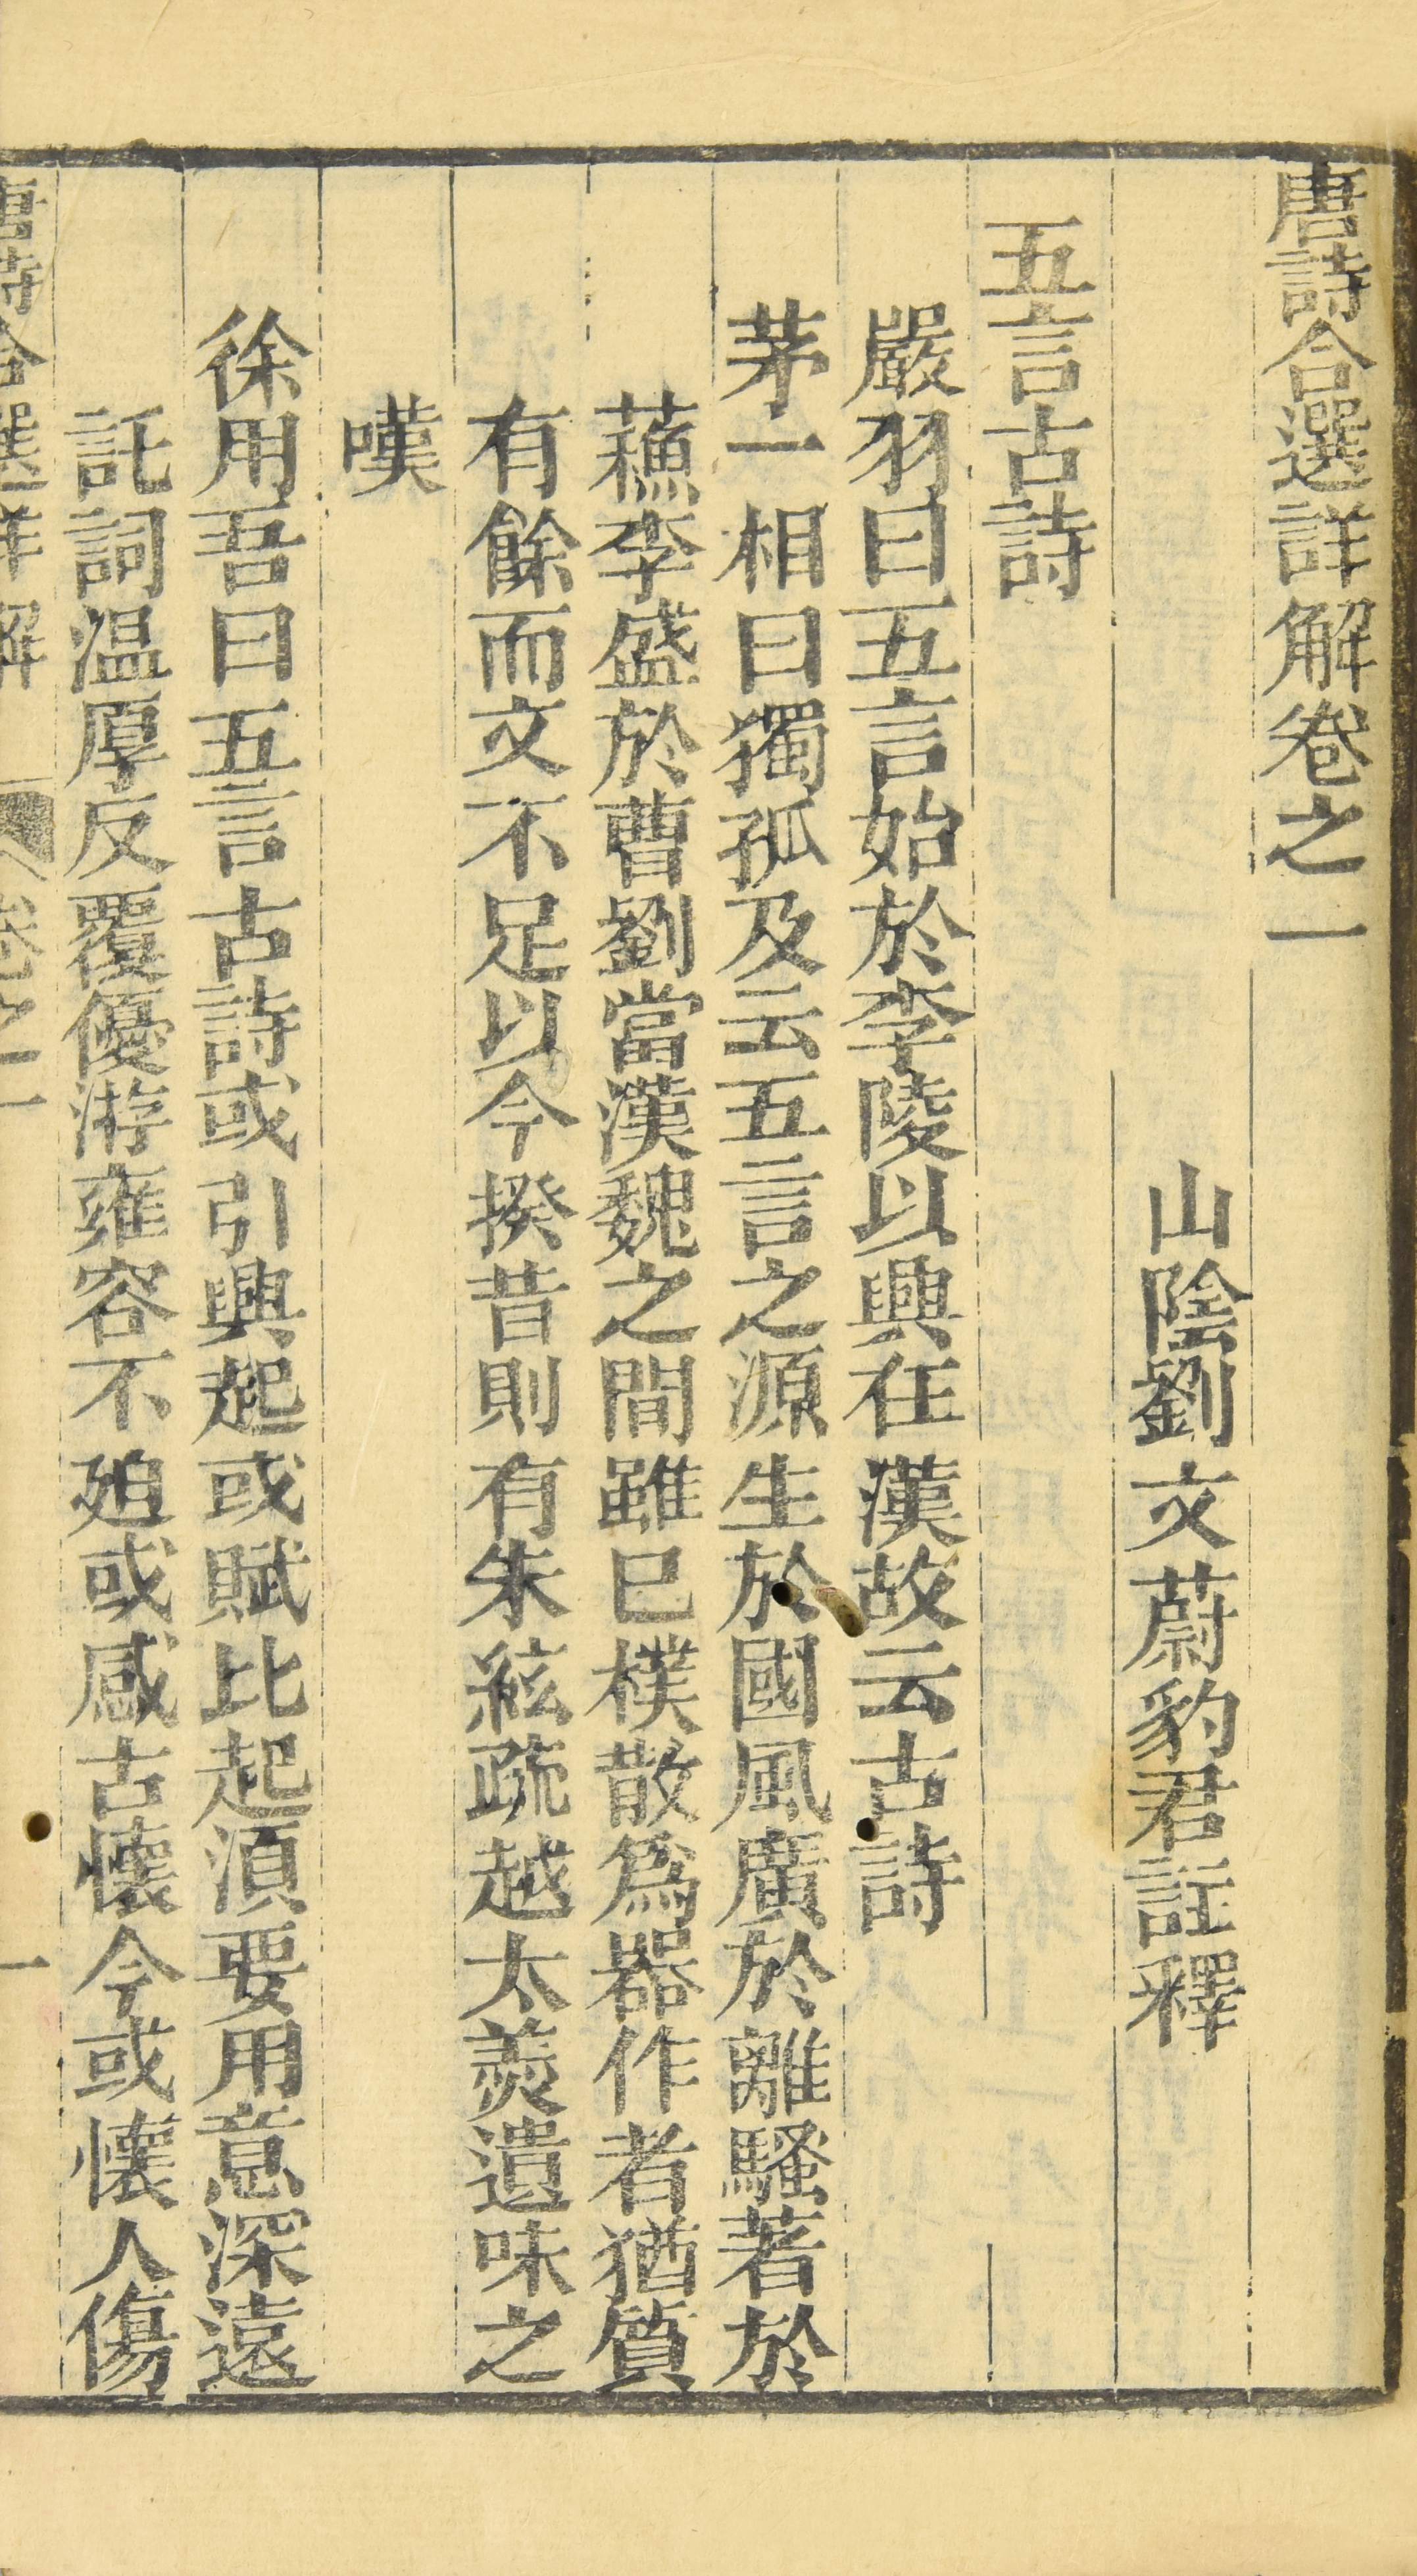 唐詩合選詳解卷之一
山陰劉文蔚豹君註釋
五言古詩
嚴羽曰五言始於李陵以興在漢故云古詩
茅一相曰獨孤及云五言之源生於國風廣於離騷著於
蘓李盛於曹劉當漢魏之間雖已樸散爲器作者猶質
有餘而文不足以今揆昔則有朱絃疏越太羮遺味之
嘆
徐用吾曰五言古詩或引興起或賦比起湏要用意深遠
託詞温厚反覆優游雍容不廹或感古懷今或懷人傷
唐詩合選詳解 卷之一 一